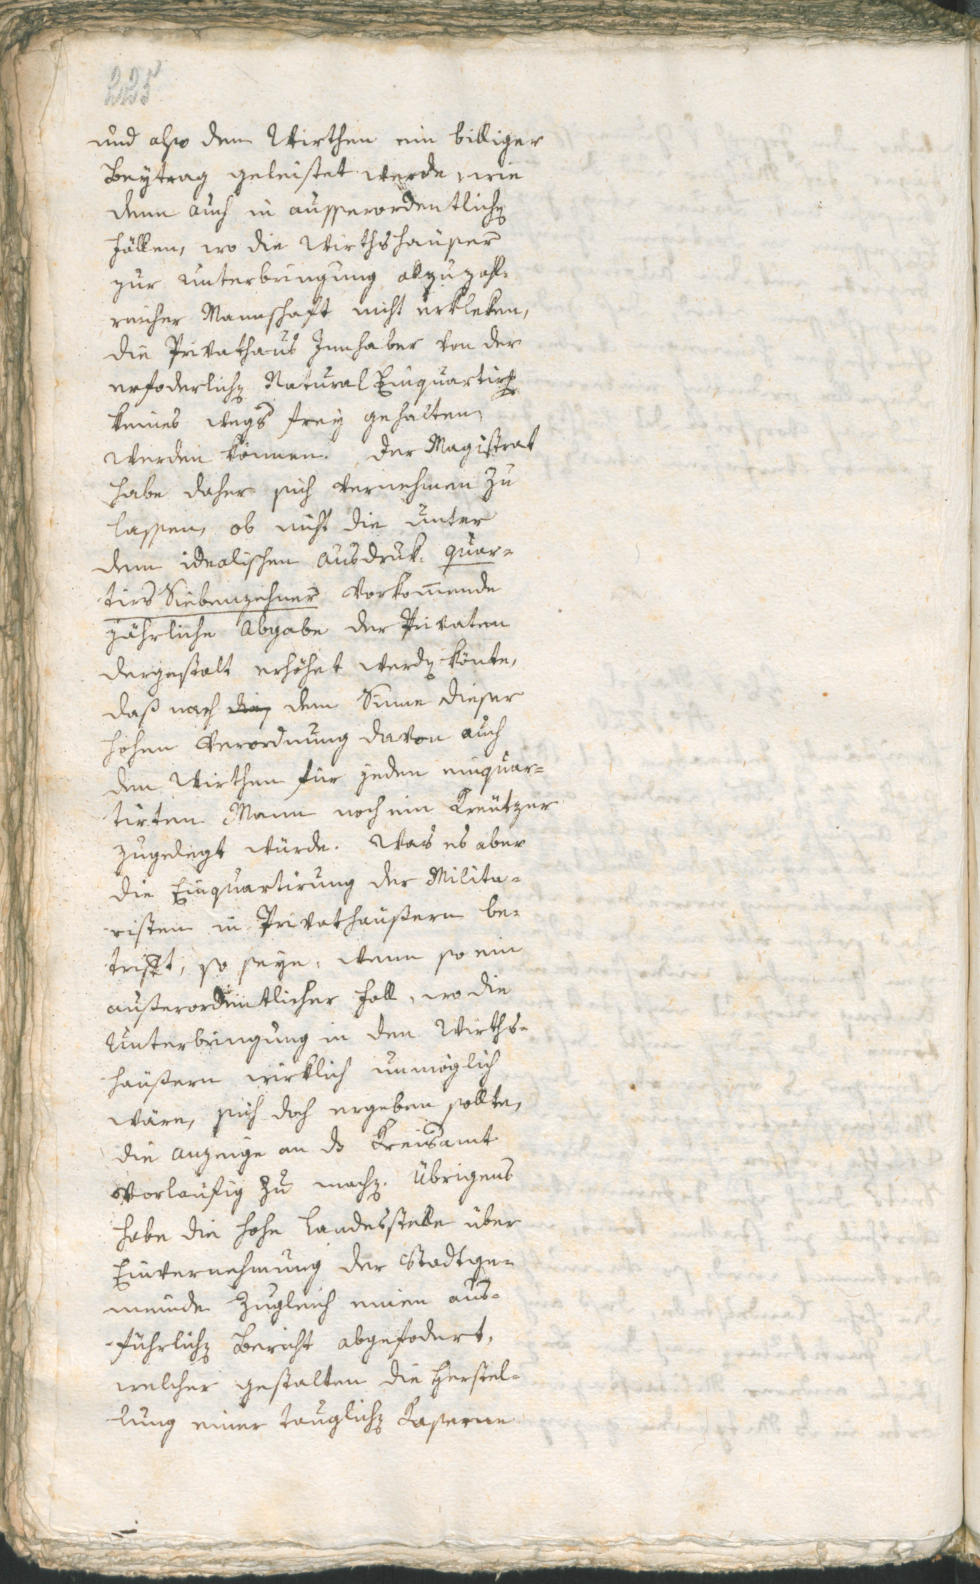 225
und also dem Wirthen ein billiger
Beÿtrag geleistet werde, wie
denn auch in ausserordentlichen
Fällen, wo die Wirthshäuser
zur Unterbringung allzuzahl-
reicher Mannschaft nicht erkleken,
die Privathaus Innhaber von der
erfoderlichen Natural Einquartirg
keines wegs freÿ gehalten
werden können. Der Magistrat
habe daher sich vernehmen zu
lassen, ob nicht die unter
dem idealischen Ausdruk quar-
tirs Siebenzehner vorkom̅ende
jährliche Abgabe der Privaten
dergestalt erhöhet werden könte,
daß nach dem Sinne dieser
hohen Verordnung davon auch
den Wirthen für jeden einquar-
tirten Mann noch ein Kreutzer
zugelegt würde. Was es aber
die Einquartirung der Milita-
risten in Privathäußern be-
trift, so seÿe, wenn so ein
außerordentlicher Fall, wo die
Unterbringung in den Wirths-
häußern wirklich unmöglich
wäre, sich doch ergeben sollte,
die Anzeige an ds Kreisamt
vorläufig zu machen. Übrigens
habe die hohe Landesstelle über
Einvernehmung der Stadtge-
meinde zugleich einen aus-
führlichen Bericht abgefodert,
welcher gestalten die Herstel-
lung einer tauglichen Kaserne